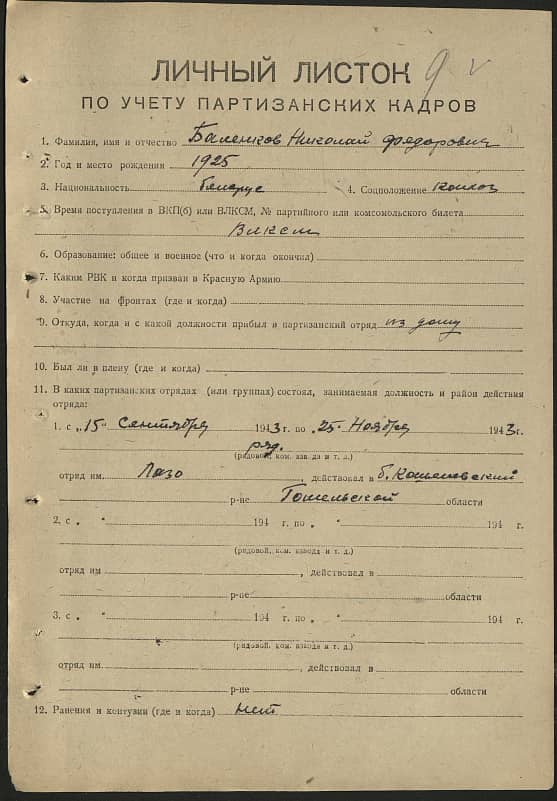 ЛИЧНЫЙ ЛИСТОК 9
ПО УЧЕТУ ПАРТИЗАНСКИХ КАДРОВ
1. Фамилия, имя и отчество Баленков Николай Фядорович
2. Год и место рождения 1925
3. Национальность беларус 4. Соцположение колхоз
5. Время поступления в ВКП(б) или ВЛКСМ, № партийного или комсомольского билета
Влксм
6. Образование: общее и военное (что и когда окончил)
7. Каким РВК и когда призван в Красную Армию
8. Участие на фронтах (где и когда)
9. Откуда, когда и с какой должности прибыл в партизанский отряд из дому
10. Был ли в плену (где и когда)
11. В каких партизанских отрядах (или группах) состоял, занимаемая должность и район действия
отряда:
1. с „15" Сентября 1943 г. по „25" Ноября 1943 г.
ряд.
(рядовой, ком. взвода и т. д.)
отряд им. Лазо, действовал в б. Кошелевский
р-не Гомельской области
2. с „ " 194 г. по „ " 194 г.
(рядовой, ком. взвода и т. д.)
отряд им , действовал в
р-не области
3. с „ " 194 г. по „ " 194 г.
(рядовой, ком. взвода и т. д.)
отряд им. , действовал в
р-не области
12. Ранения и контузии (где и когда) нет